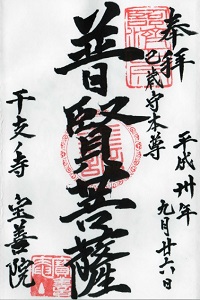 奉拝
巳歳守本尊
平成卅年
九月廿六日
普賢菩薩
干支ノ寺
宝善院